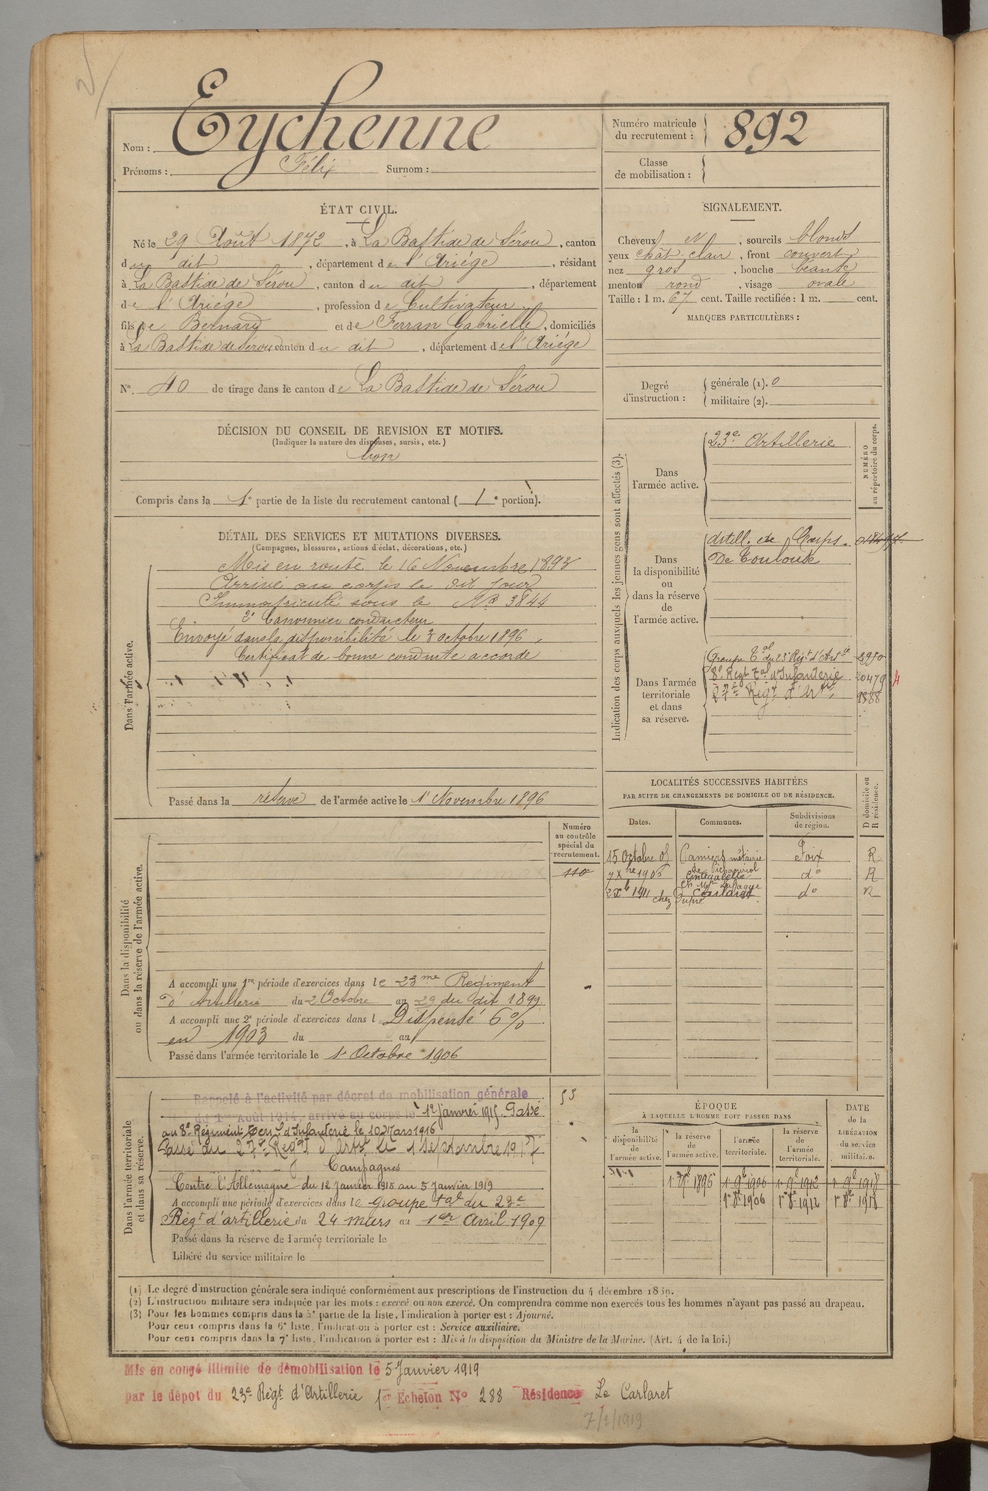 Nom : Eychenne
Prénoms : Félix Surnom :
Numéro matricule du recrutement : 892
Classe de mobilisation :
ÉTAT CIVIL.
Né le 29 Août 1872, à La Bastide de Sérou, canton
du dit, département de l'Ariège, résidant
à La Bastide de Sérou, canton du dit, département
de l'Ariège, profession de Cultivateur
fils de Bernard et de Ferran Gabrielle, domiciliés
à La Bastide de Serou canton du dit, département de l'Ariège
N° 40 de tirage dans le canton de La Bastide de Sérou
SIGNALEMENT.
Cheveux et, sourcils blonds
yeux chât. clair, front couvert
nez gros, bouche béante
menton rond, visage ovale
Taille : 1 m. 67 cent. Taille rectifiée : 1 m. cent.
MARQUES PARTICULIÈRES :
Degré d'instruction : générale (1). 0
militaire (2).
DÉCISION DU CONSEIL DE REVISION ET MOTIFS.
(Indiquer la nature des dispenses, sursis, etc.)
bon
Compris dans la 1e partie de la liste du recrutement cantonal ( 1e portion).
DÉTAIL DES SERVICES ET MUTATIONS DIVERSES.
(Campagnes, blessures, actions d'éclat, décorations, etc.)
Dans l'armée active.
Mis en route le 16 Novembre 1893
Arrivé au corps le dit jour
Immatriculé sous le N° 3844
2e Canonnier conducteur
Envoyé dans la disponibilité le 3 octobre 1896.
Certificat de bonne conduite accordé
Passé dans la réserve de l'armée active le 1er Novembre 1896
Indication des corps auxquels les jeunes gens sont affectés (3).
NUMÉRO au répertoire du corps.
Dans l'armée active.
23e Artillerie
Dans la disponibilité ou dans la réserve de l'armée active.
Artill. de Corps.
De Toulouse
Dans l'armée territoriale et dans sa réserve.
Groupe Tal du 23e Régt d'Artie 2970
8e Régt Tal d'Infanterie
27e Régt d'Artie
LOCALITÉS SUCCESSIVES HABITÉES
PAR SUITE DE CHANGEMENTS DE DOMICILE OU DE RÉSIDENCE.
Dates. Communes. Subdivisions de région. D domicile ou R résidence.
15 Octobre Pamiers métairie Foix R
7 Xbre 1906 do R
1911 chez Carlaret do R
Dans la disponibilité ou dans la réserve de l'armée active.
Numéro au contrôle spécial du recrutement.
110
A accompli une 1re période d'exercices dans le 23me Régiment
d'Artillerie du 2 Octobre au 29 du dit 1899
A accompli une 2e période d'exercices dans l Dispensé 6%
en 1903 du au
Passé dans l'armée territoriale le 1er Octobre 1906
Dans l'armée territoriale et dans sa réserve.
Rappelé à l'activité par décret de mobilisation générale
du 1er Août 1914, arrivé au corps le 12 janvier 1915. Passé
au 8e Régiment Terr. d'Infanterie le 10 Mars 1916
Passé au 27e Régt d'Artie le 1 Septembre 1917.
Campagnes
Contre l'Allemagne du 12 janvier 1915 au 5 janvier 1919
A accompli une période d'exercices dans le Groupe tal du 23e
Régt d'artillerie du 24 mars au 1er Avril 1909
Passé dans la réserve de l'armée territoriale le
Libéré du service militaire le
ÉPOQUE
À LAQUELLE L'HOMME DOIT PASSER DANS
la disponibilité de l'armée active. la réserve de l'armée active. l'armée territoriale. la réserve de l'armée territoriale.
DATE de la LIBÉRATION du service militaire.
1er 9bre 1896 1er 9bre 1906 1er 9bre 1912 1er 9bre 1918
1er 8bre 1906 1er 8bre 1912 1er 8bre 1918
(1) Le degré d'instruction générale sera indiqué conformément aux prescriptions de l'instruction du 4 décembre 1889.
(2) L'instruction militaire sera indiquée par les mots : exercé ou non exercé. On comprendra comme non exercés tous les hommes n'ayant pas passé au drapeau.
(3) Pour les hommes compris dans la 5e partie de la liste, l'indication à porter est : Ajourné.
Pour ceux compris dans la 6e liste, l'indication à porter est : Service auxiliaire.
Pour ceux compris dans la 7e liste, l'indication à porter est : Mis à la disposition du Ministre de la Marine. (Art. 4 de la loi.)
Mis en congé illimité de démobilisation le 5 Janvier 1919
par le dépôt du 23e Régt d'Artillerie 1er Echelon N° 288 Résidence Le Carlaret
7/1/1919